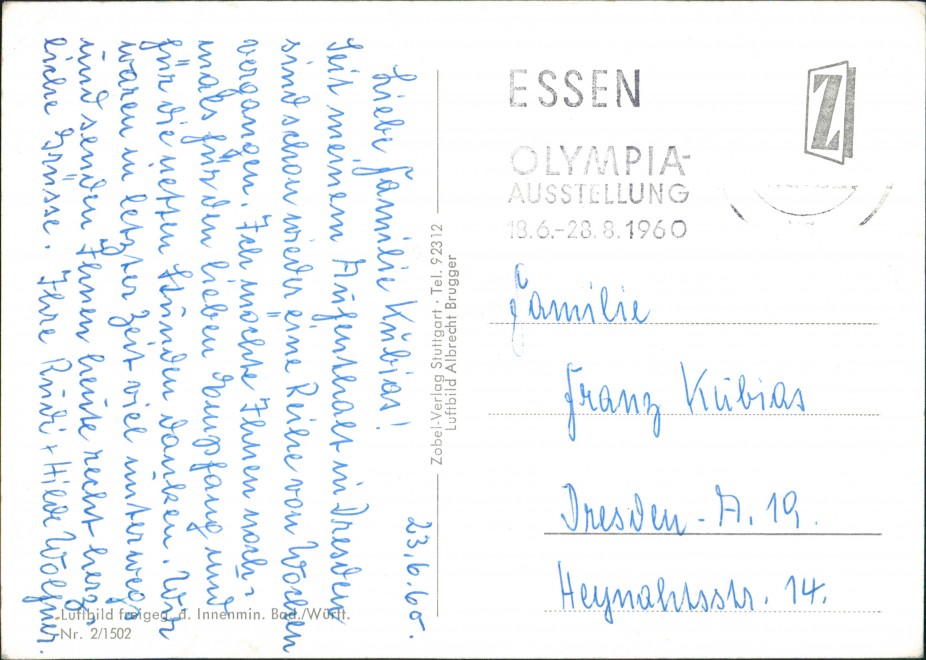 23.6.60.
Liebe Familie Kubias!
Seit meinem Aufenthalt in Dresden
sind schon wieder eine Reihe von Wochen
vergangen. Ich möchte Ihnen noch-
mals für den lieben Empfang und
für die netten Stunden danken. Wir
waren in letzter Zeit viel unterwegs
und senden Ihnen heute recht herz-
liche Grüsse. Ihre Rudi + Hilde
Zobel-Verlag Stuttgart · Tel. 92312
Luftbild Albrecht Brugger
ESSEN
OLYMPIA-
AUSSTELLUNG
18.6.-28.8.1960
Z
Familie
Franz Kubias
Dresden - A. 19.
Heynahtsstr. 14.
Luftbild freigeg. d. Innenmin. Bad./Württ.
Nr. 2/1502